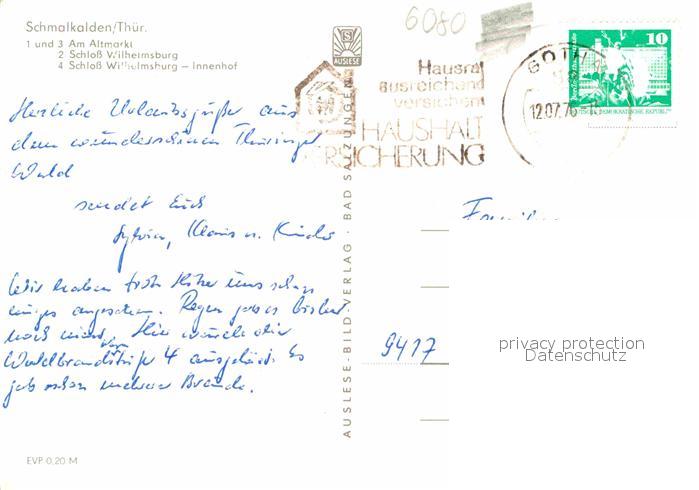 Schmalkalden/Thür.
1 und 3 Am Altmarkt
2 Schloß Wilhelmsburg
4 Schloß Wilhelmsburg – Innenhof
Herzliche Urlaubsgrüße aus
dem wunderschönen Thüringer
Wald
sendet Euch
Sylvia, Klaus u. Kinder
Wir haben trotz Hitze uns schon
einiges angesehen. Regen gab es bisher
noch nicht. Hier wurde die
Waldbrandstufe 4 ausgelöst. Es
gab schon mehrere Brände.
EVP 0,20 M
AUSLESE
AUSLESE-BILD-VERLAG · BAD SALZUNGEN
6080
Hausrat
ausreichend
versichern
HAUSHALT
VERSICHERUNG
GOTH
12.07.76
10
DEUTSCHE DEMOKRATISCHE REPUBLIK
9417
privacy protection
Datenschutz